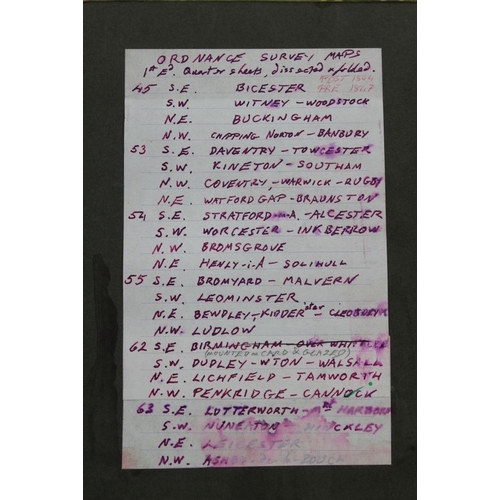 ORDNANCE SURVEY MAPS
1st Ed. Quarter sheets, dissected & folded.
POST 1864
PRE 1867
45 S.E. BICESTER
S.W. WITNEY - WOODSTOCK
N.E. BUCKINGHAM
N.W. CHIPPING NORTON - BANBURY
53 S.E. DAVENTRY - TOWCESTER
S.W. KINETON - SOUTHAM
N.W. COVENTRY, - WARWICK - RUGBY
N.E. WATFORD GAP - BRAUNSTON
54 S.E. STRATFORD-n-A. - ALCESTER
S.W. WORCESTER - INKBERROW
N.W. BROMSGROVE
N.E. HENLY-i-A - SOLIHULL
55 S.E. BROMYARD - MALVERN
S.W. LEOMINSTER
N.E. BEWDLEY, - KIDDER'ster - CLEOBURY
N.W. LUDLOW
62 S.E. BIRMINGHAM - OVER WHITACRE
(MOUNTED on CARD & GLAZED)
S.W. DUDLEY - W'TON - WALSALL
N.E. LICHFIELD - TAMWORTH
N.W. PENKRIDGE - CANNOCK
63 S.E. LUTTERWORTH - HARBORO
S.W. NUNEATON - HINCKLEY
N.E. LEICESTER
N.W. ASHBY-de-la-ZOUCH